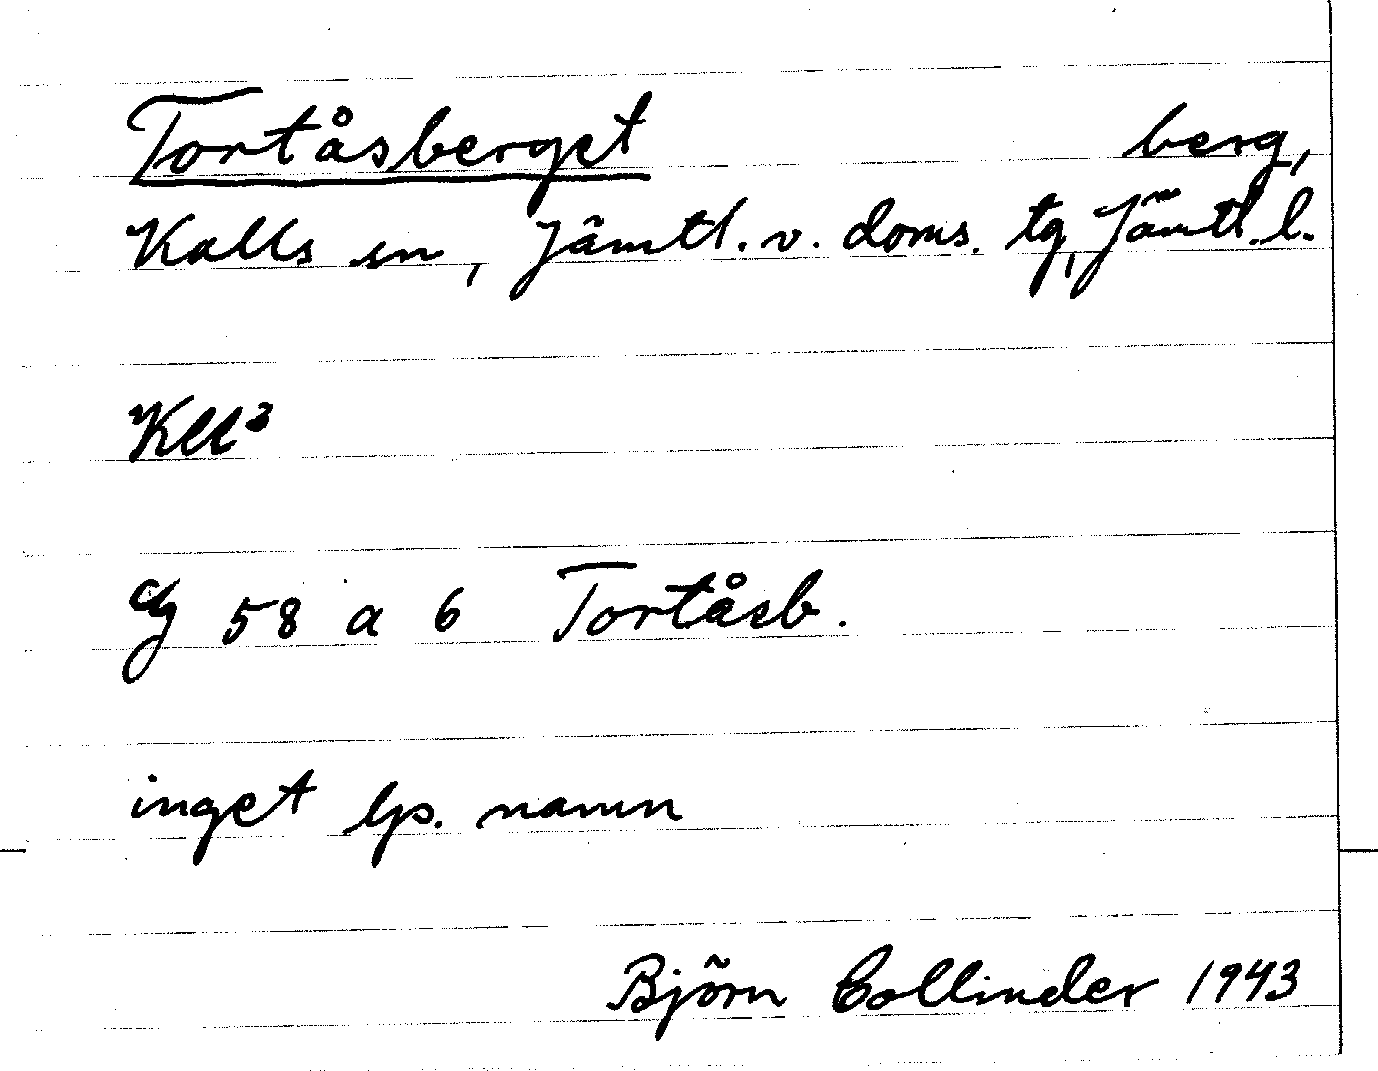 Tortåsberget berg,
Kalls sn, Jämtl. v. doms. tg, Jämtl. l.
Kll³
59 a 6 Tortåsb.
inget lp. namn
Björn Collinder 1943